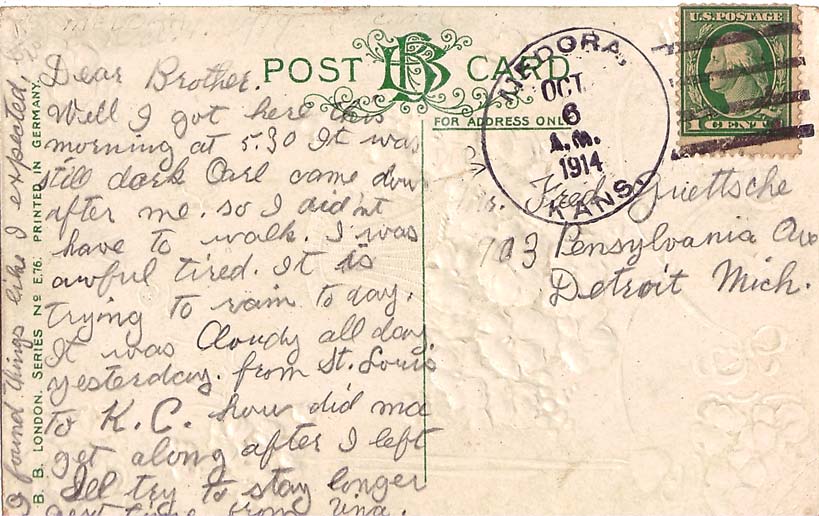 POST CARD
BB
FOR ADDRESS ONLY
U.S. POSTAGE
1 CENT 1
MEDORA,
OCT
6
A.M.
1914
KANS.
Dear Brother.
Well I got here this
morning at 5.30 It was
still dark Carl came down
after me. so I did'nt
have to walk. I was
awful tired. It is
trying to rain to day.
It was Cloudy all day.
yesterday. from St. Louis
to K.C. how did ma
get along after I left
Ill try to stay longer
next time from
I found things like I expected,
B. B. LONDON. SERIES No E.76. PRINTED IN GERMANY.
Fred Gruettsche
903 Pensylvania Ave
Detroit Mich.